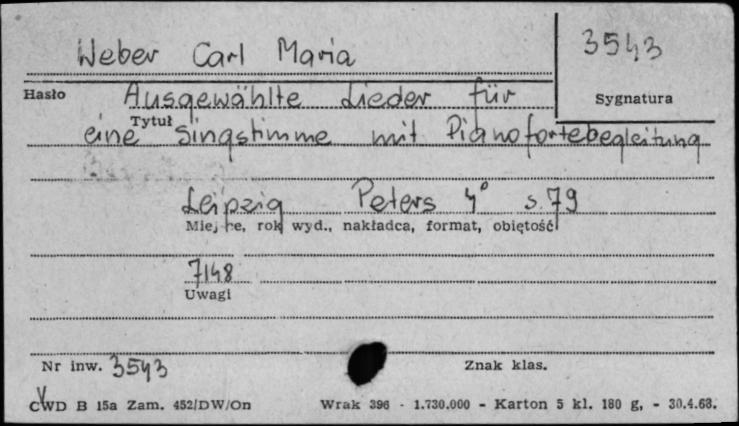 Weber Carl Maria
3543
Hasło
Sygnatura
Ausgewählte Lieder für
Tytuł
eine Singstimme mit Pianofortebegleitung
Leipzig Peters 4° s. 79
Miejsce, rok wyd., nakładca, format, objętość
7148
Uwagi
Nr inw. 3543
Znak klas.
CWD B 15a Zam. 452/DW/On Wrak 396 - 1.730.000 - Karton 5 kl. 180 g, - 30.4.68.